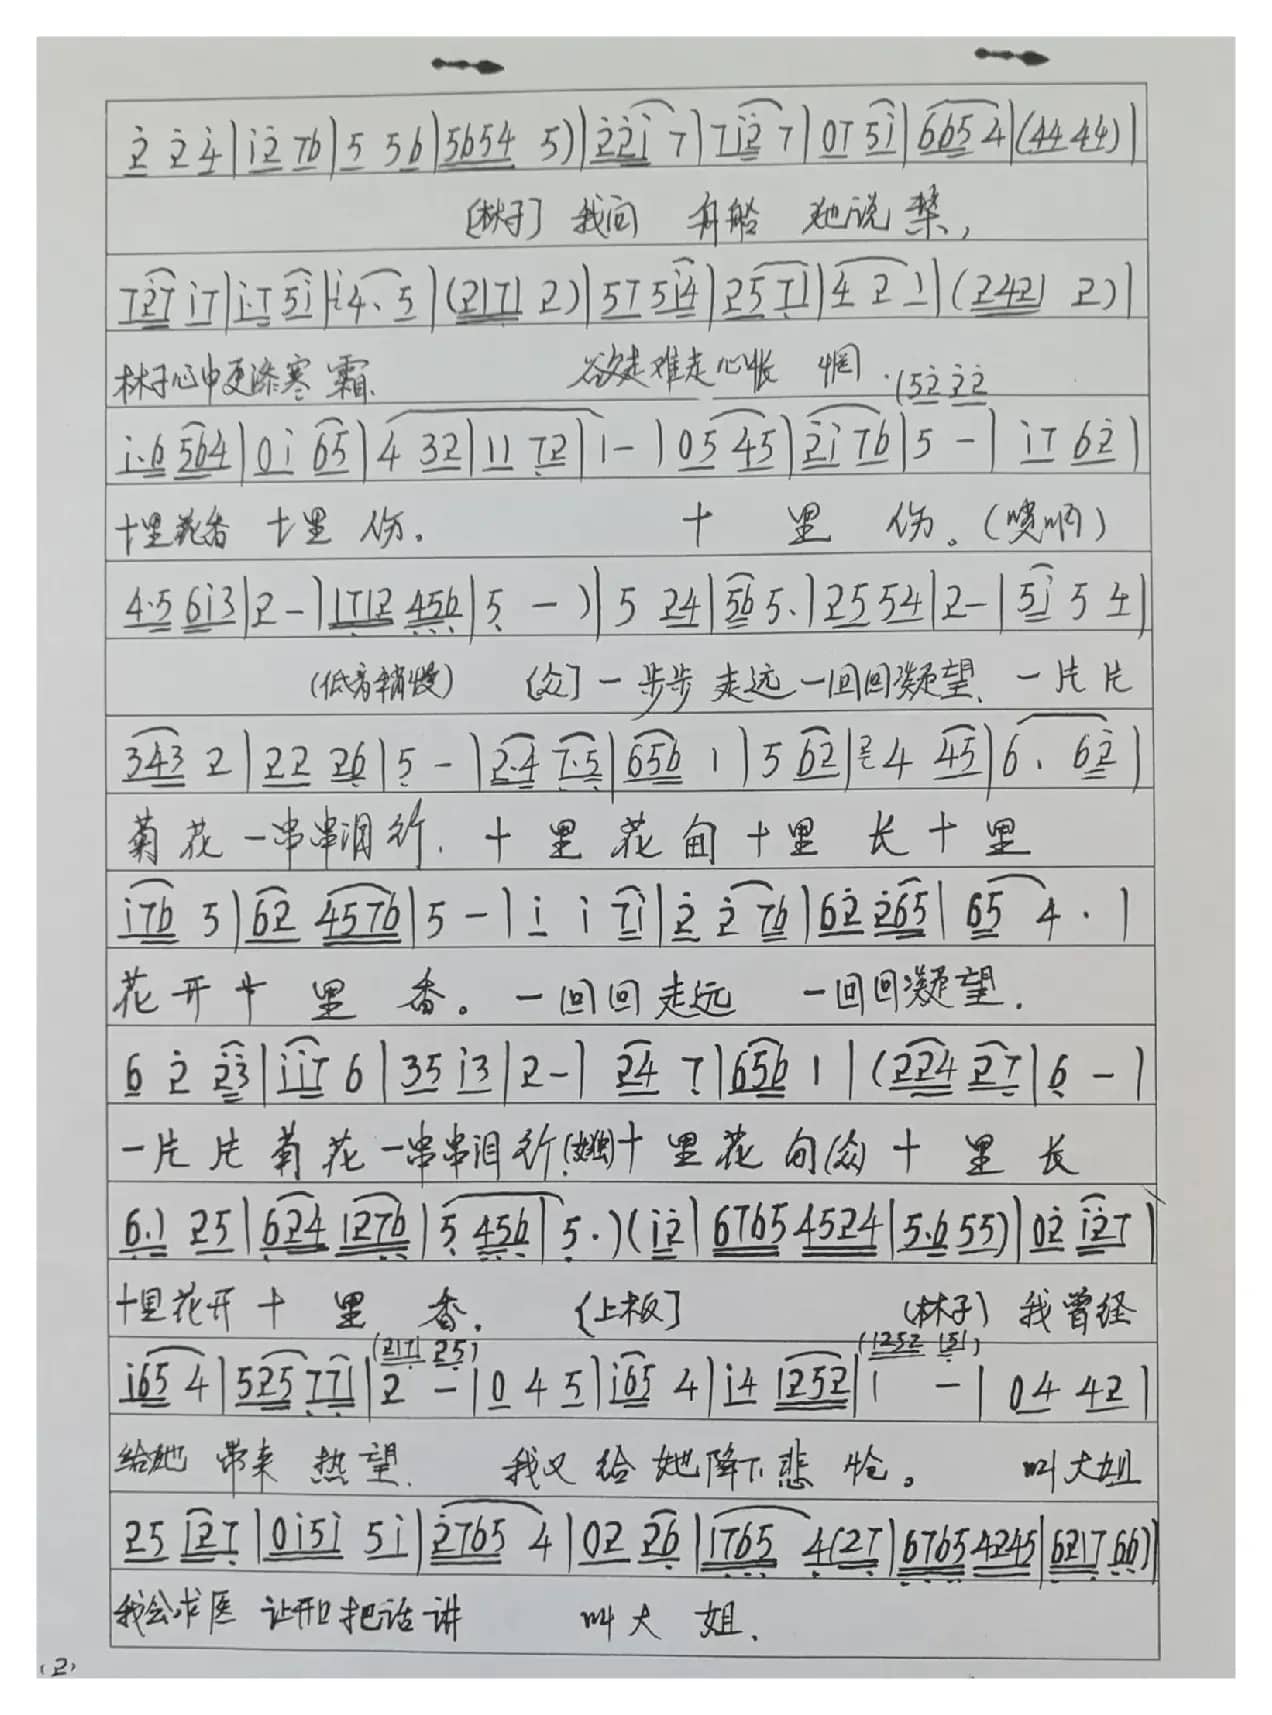 2̇ 2̇ 4̇|i2̇ 76|5 56|5654 5)|2̇2̇i 7|7i2̇ 7|07 5i|6654|(44 44)|
[林子] 我问 她说禁,
727 i7|i·7 5i|i4· 5|(2171 2)|57 5i4|25 71|4 2 1|(2421 2)|
林子心中更添寒霜. 欲走难走心怅惘.
(52̇ 2̇2̇
i·6 564|0i 65|4 32|11 72|1-|05 45|2̇i 76|5 -|i7 62̇|
十里花香 十里伤. 十里伤。(唢呐)
4·5 6i3|2-|1712 456|5 -)|5 24|56 5·|25 54|2-|5i 5 4|
(低音稍慢) (众] 一步步走远一回回凝望. 一片片
343 2|22 26|5 -|2·4 7·5|656 1|5 62|4 45|6. 62̇|
菊花一串串泪行. 十里花甸十里长十里
i76 5|62 4576|5 -|i i 7i|2̇ 2̇ 76|62̇ 2̇65|65 4·|
花开十里香。一回回走远 一回回凝望.
6 2̇ 2̇3̇|ii7 6|35 i3|2-|24 7|656 1|(224 27|6 -|
一片片菊花一串串泪行 十里花甸(众)十里长
6·1 25|624 1276|5 456|5·)(i2̇|6765 4524|5·6 55)|02̇ i2̇7|
十里花开十里香. (上板] (林子) 我曾经
(2171 25) (1252 151)
i65 4|525 771|2 -|0 4 5|i65 4|i4 1252|1 -|04 42|
给她带来热望. 我又给她降下悲怆。 叫大姐
25 127|0i5i 5i|2̇765 4|02 26|1765 4(27|6765 4245|6217 66)|
我会求医 让开口把话讲 叫大姐.
(2)